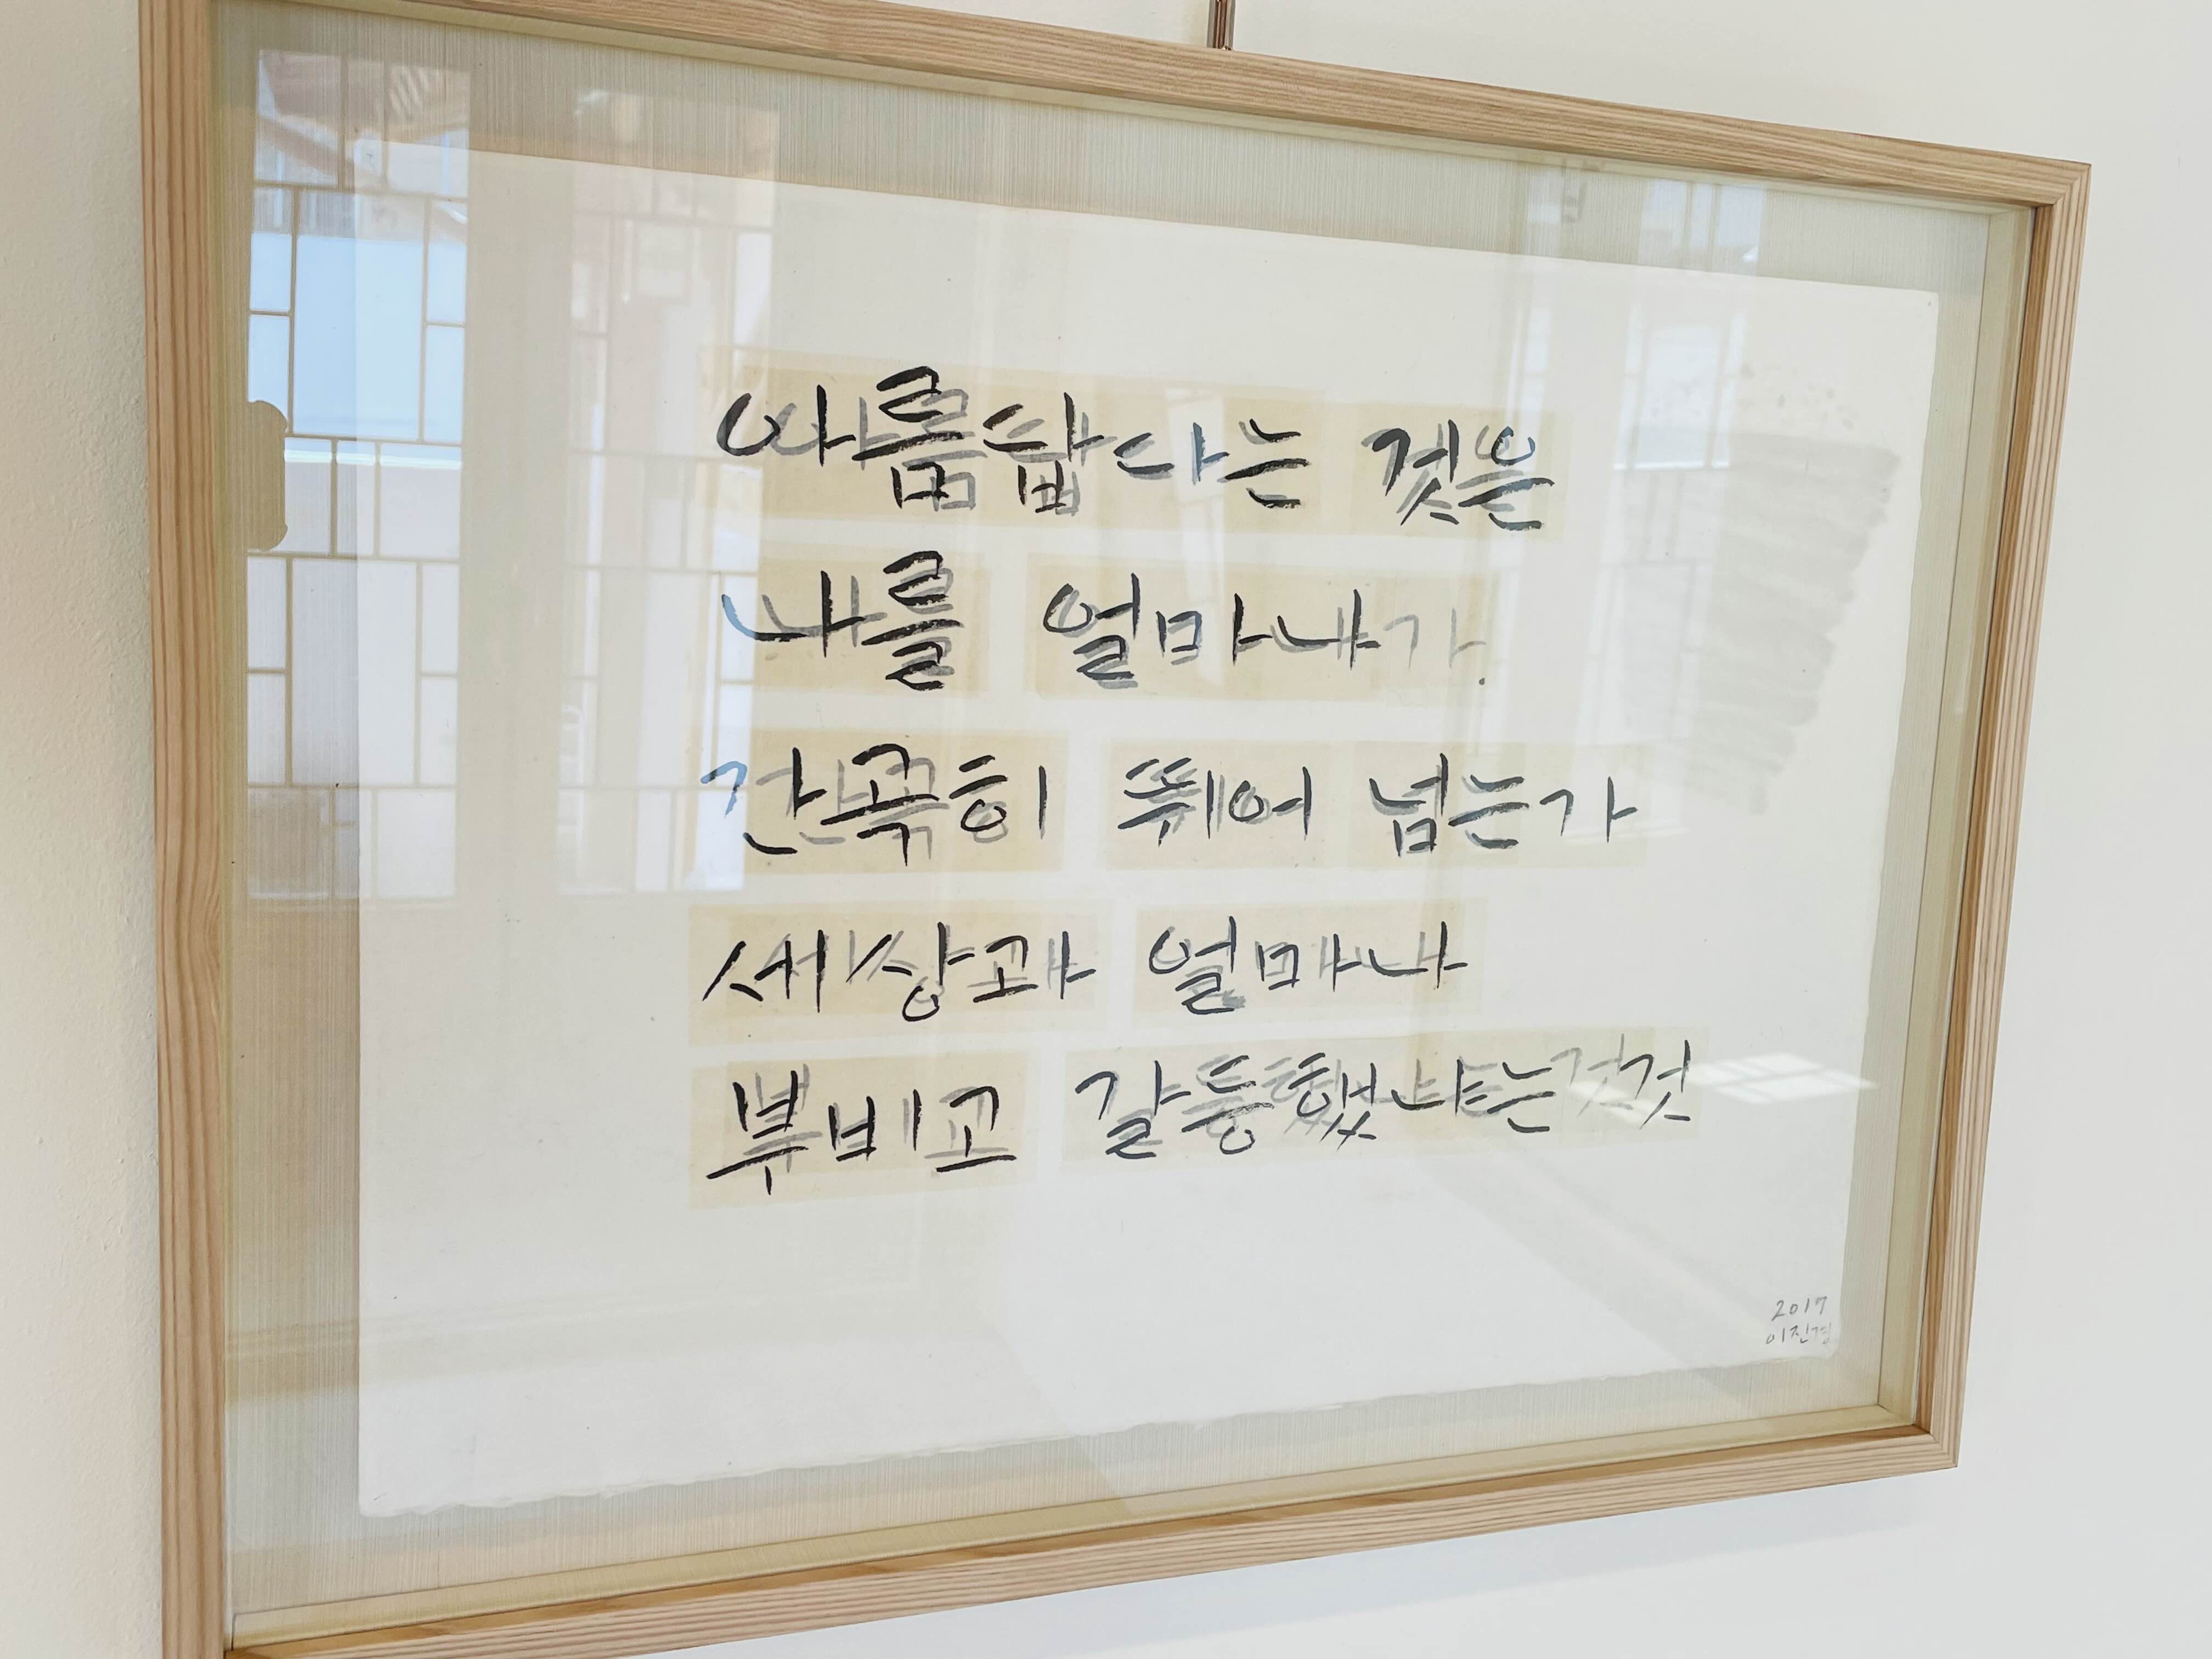 아름답다는 것은
나를 얼마나
간곡히 뛰어 넘는가
세상과 얼마나
부비고 갈등했냐는것
2017
이진경